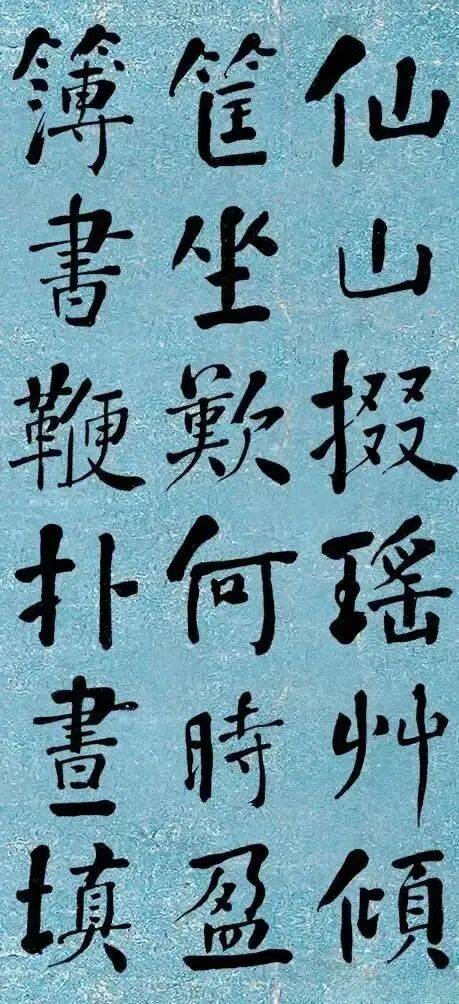 仙山掇瑶艸傾
筐坐歎何時盈
簿書鞭扑晝填